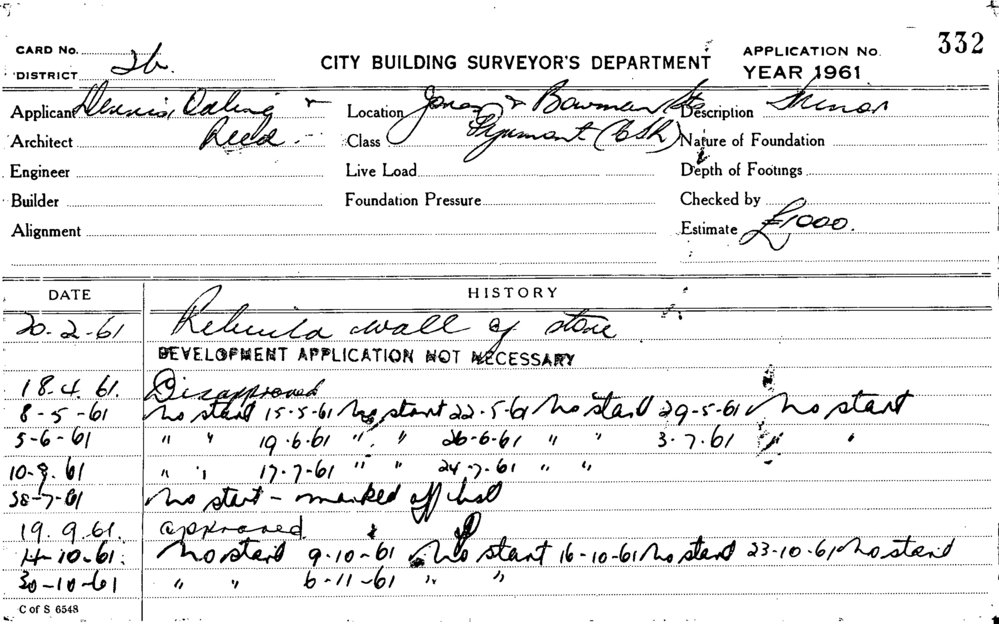 332
CARD No.
DISTRICT 2b.
CITY BUILDING SURVEYOR'S DEPARTMENT
APPLICATION No.
YEAR 1961
Applicant Dennis, Darling &
Location Jones & Bowman Sts
Description Minor
Architect Reed.
Class Pyrmont (6Sh)
Nature of Foundation
Engineer
Live Load
Depth of Footings
Builder
Foundation Pressure
Checked by
Alignment
Estimate £1000.
DATE
HISTORY
20-2-61 Rebuild wall of store
DEVELOPMENT APPLICATION NOT NECESSARY
18.4.61. Disapproved
8-5-61 No start 15-5-61 No start 22-5-61 No start 29-5-61 No start
5-6-61 " " 19-6-61 " " 26-6-61 " " 3.7.61 " "
10-7.61 " " 17-7-61 " " 24-7-61 " "
No start - marked off list
19.9.61. approved
No start 9-10-61 No start 16-10-61 No start 23-10-61 No start
30-10-61 " " 6-11-61 " "
C of S 6548